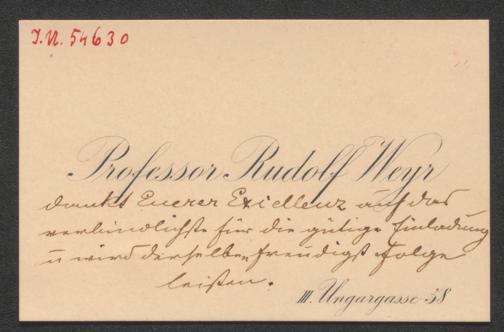 I.N. 54630
Professor Rudolf Weyr
dankt Euerer Excellenz auf das
verbindlichste für die gütige Einladung
u wird derselben freudigst Folge
leisten.
III. Ungargasse 58